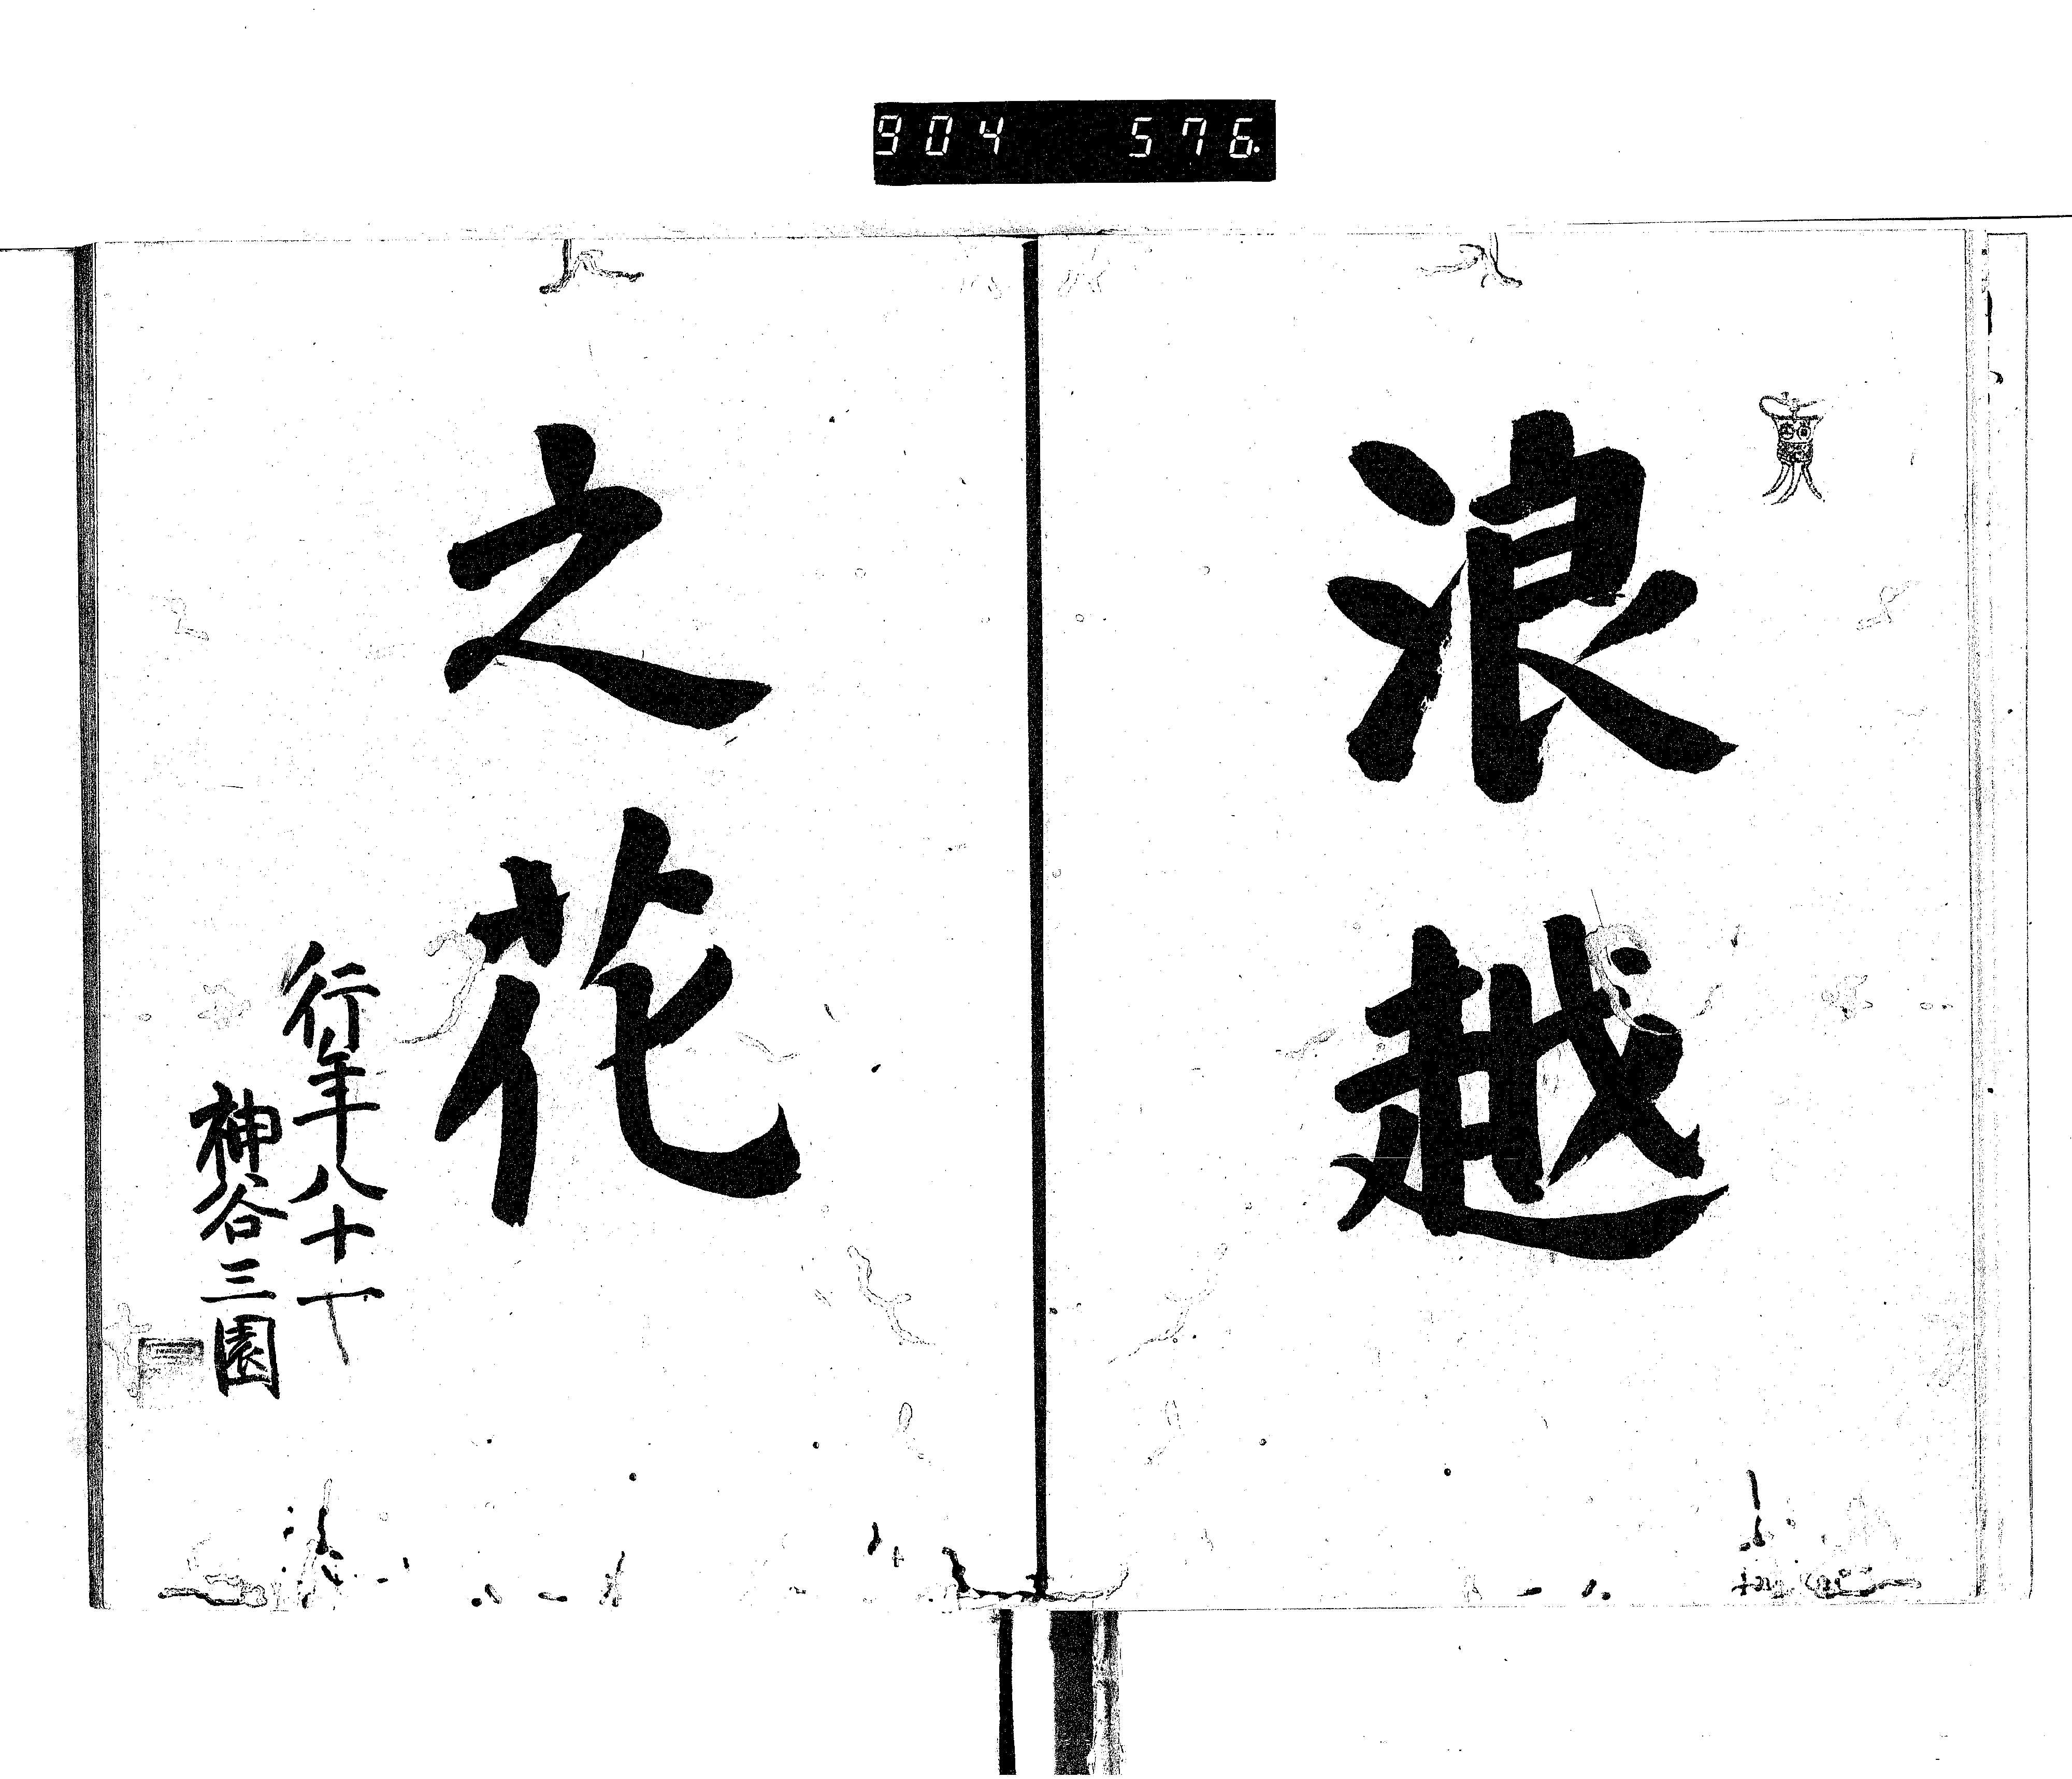 904 576
浪越
之花
行年八十一
神谷三園